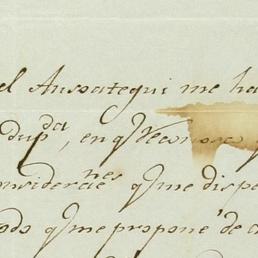 el Aussategui me ha
dup.da, en q.e Reconosc
considerac.nes q.e me disp
odo q.e me propone de